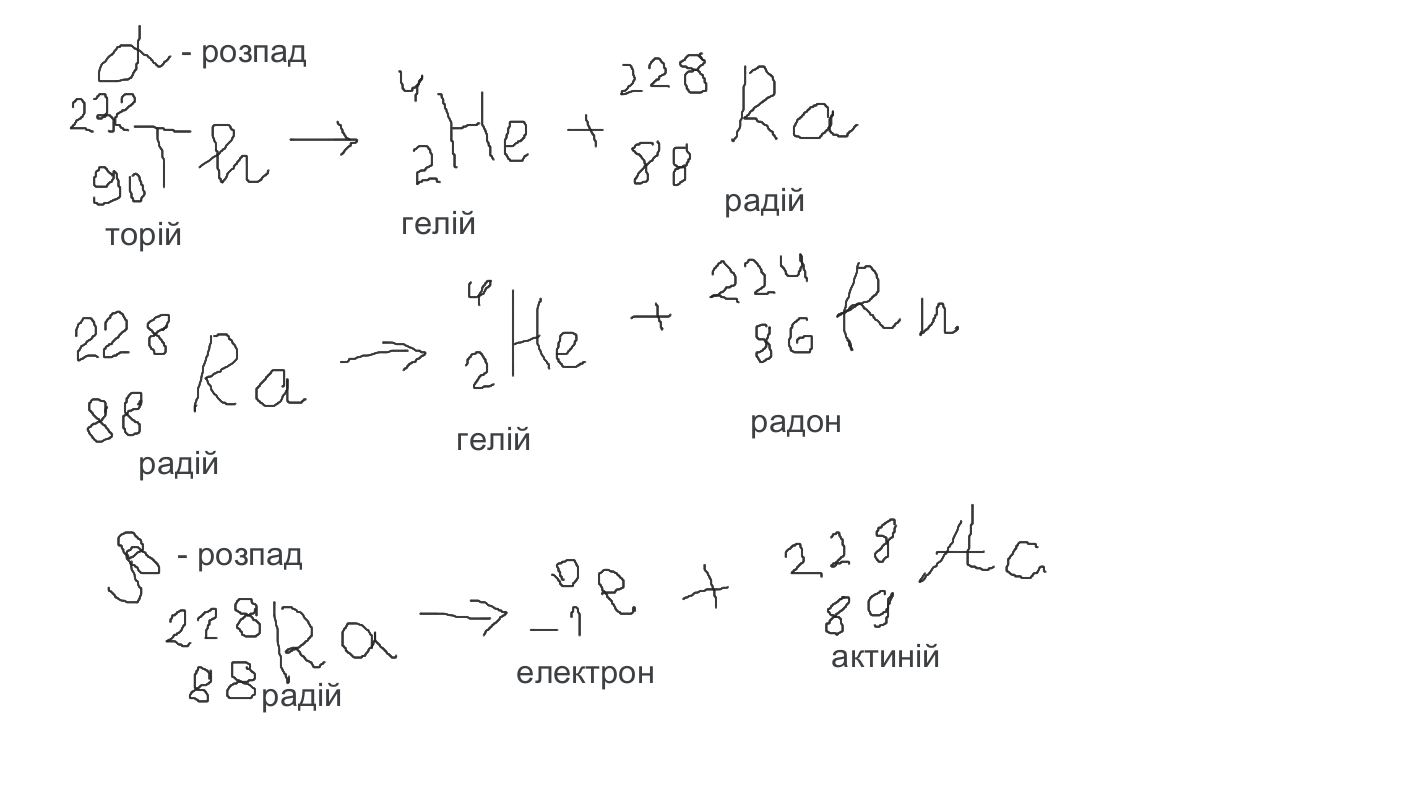 α - розпад
²³²₉₀Th → ⁴₂He + ²²⁸₈₈Ra
торій гелій радій
²²⁸₈₈Ra → ⁴₂He + ²²⁴₈₆Rn
радій гелій радон
β - розпад
²²⁸₈₈Ra → ⁰₋₁e + ²²⁸₈₉Ac
радій електрон актиній